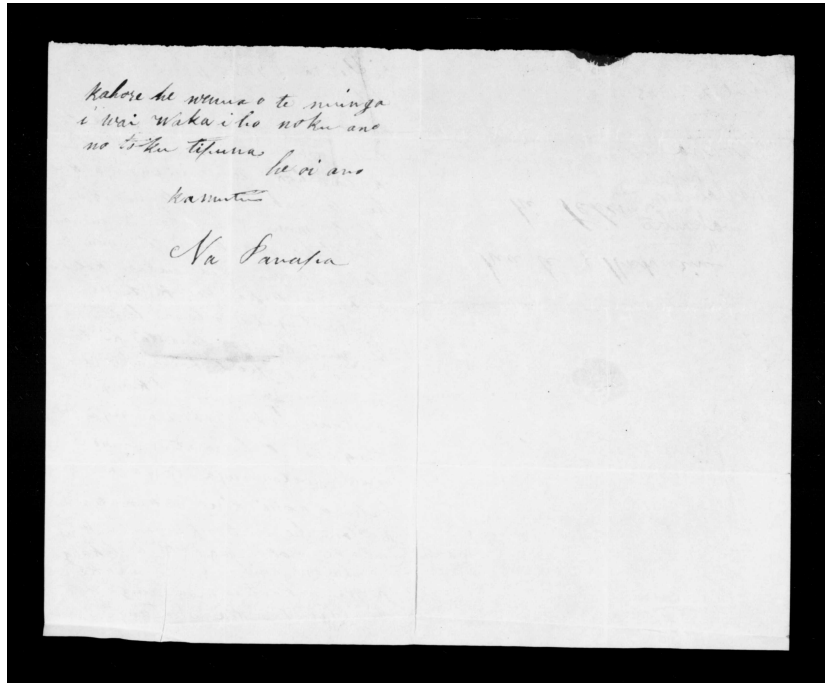 kahore he wenua o te minga
i wai waka i ho noku ano
no toku tipuna
he oi ano
kamutu
Na Panapa